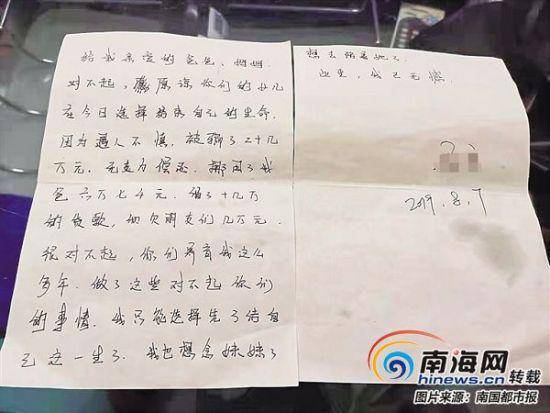 给我亲爱的爸爸、妈妈
对不起，原谅你们的女儿
在今日选择结束自己的生命.
因为遇人不慎，被骗了二十几
万元，无支力偿还，挪用了我
爸六万七千元，借了十几万
的贷款，拥欠朋友们几万元.
很对不起，你们养育我这么
多年，做了这些对不起你们
的事情，我只能选择先了结自
己这一生了，我也想念妹妹了
想去陪着她了
这里，我已无憾.
2019.8.7
南海网
hinews.cn 转载
图片来源：南国都市报